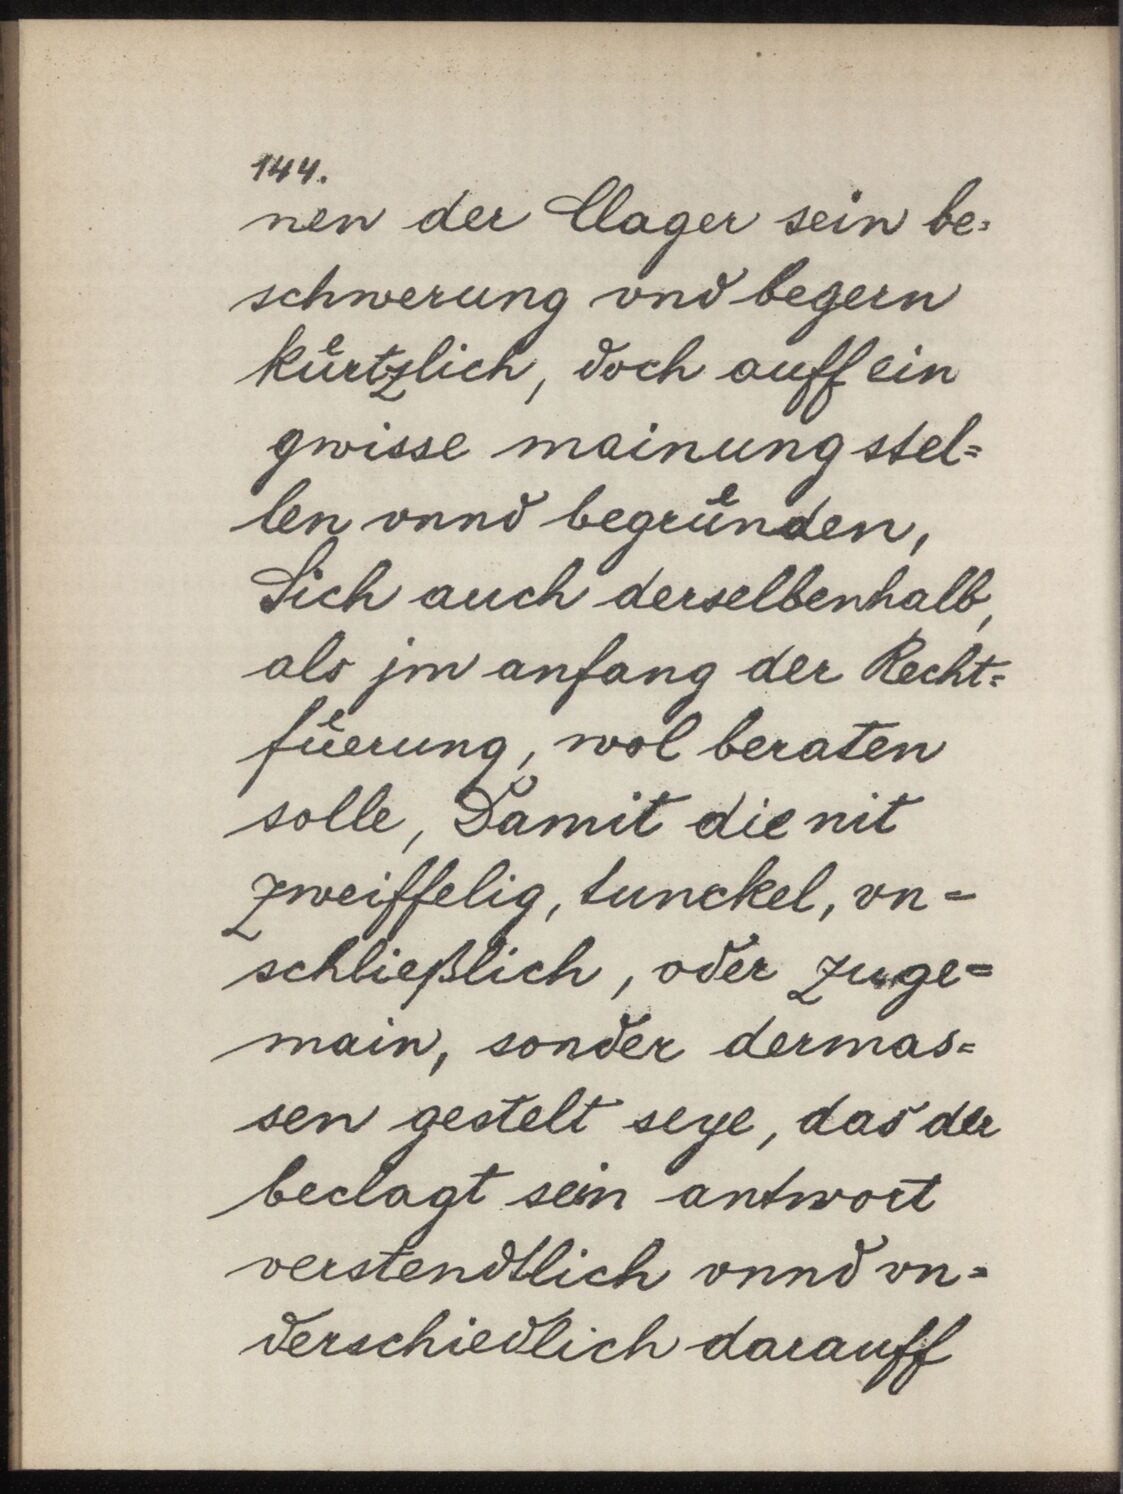 144.
nen der Clager sein be=
schwerung vnd begern
kuͤrtzlich, doch auff ein
gwisse mainung stel=
len vnnd begruͤnden,
Sich auch derselbenhalb,
als jm anfang der Recht=
fuͤerung, wol beraten
solle, Damit die nit
zweiffelig, tunckel, vn=
schließlich, oder zuge=
main, sonder dermas=
sen gestelt seye, das der
beclagt sein antwort
verstendtlich vnnd vn=
derschiedlich darauff